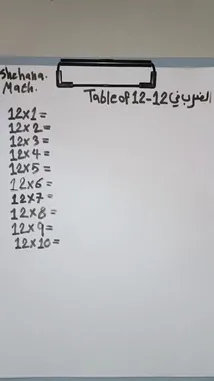 Shehana.
Math.
Table of 12-12 الضرب في
12x1=
12x2=
12x3=
12x4=
12x5=
12x6=
12x7=
12x8=
12x9=
12x10=